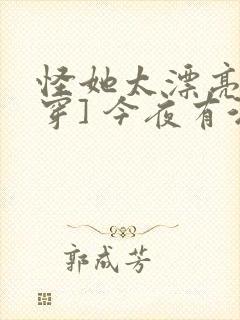 怪她太漂亮
穿]今夜有
郭成芳